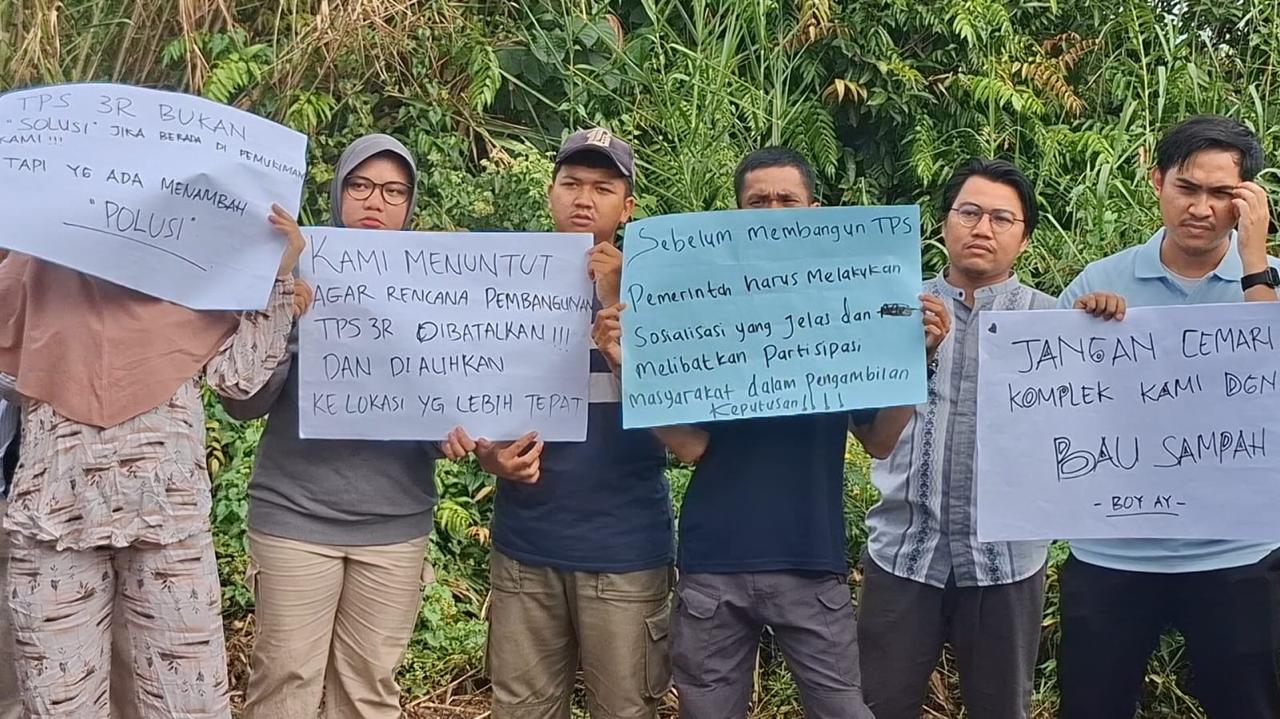 TPS 3R BUKAN
"SOLUSI" JIKA BERADA DI PEMUKIMAN
KAMI!!!
TAPI YG ADA MENAMBAH
"POLUSI"
KAMI MENUNTUT
AGAR RENCANA PEMBANGUNAN
TPS 3R DIBATALKAN!!!
DAN DIALIHKAN
KE LOKASI YG LEBIH TEPAT
Sebelum membangun TPS
Pemerintah harus Melakukan
Sosialisasi yang Jelas dan
melibatkan Partisipasi
masyarakat dalam Pengambilan
Keputusan!!!!
JANGAN CEMARI
KOMPLEK KAMI DGN
BAU SAMPAH
- BOY AY -